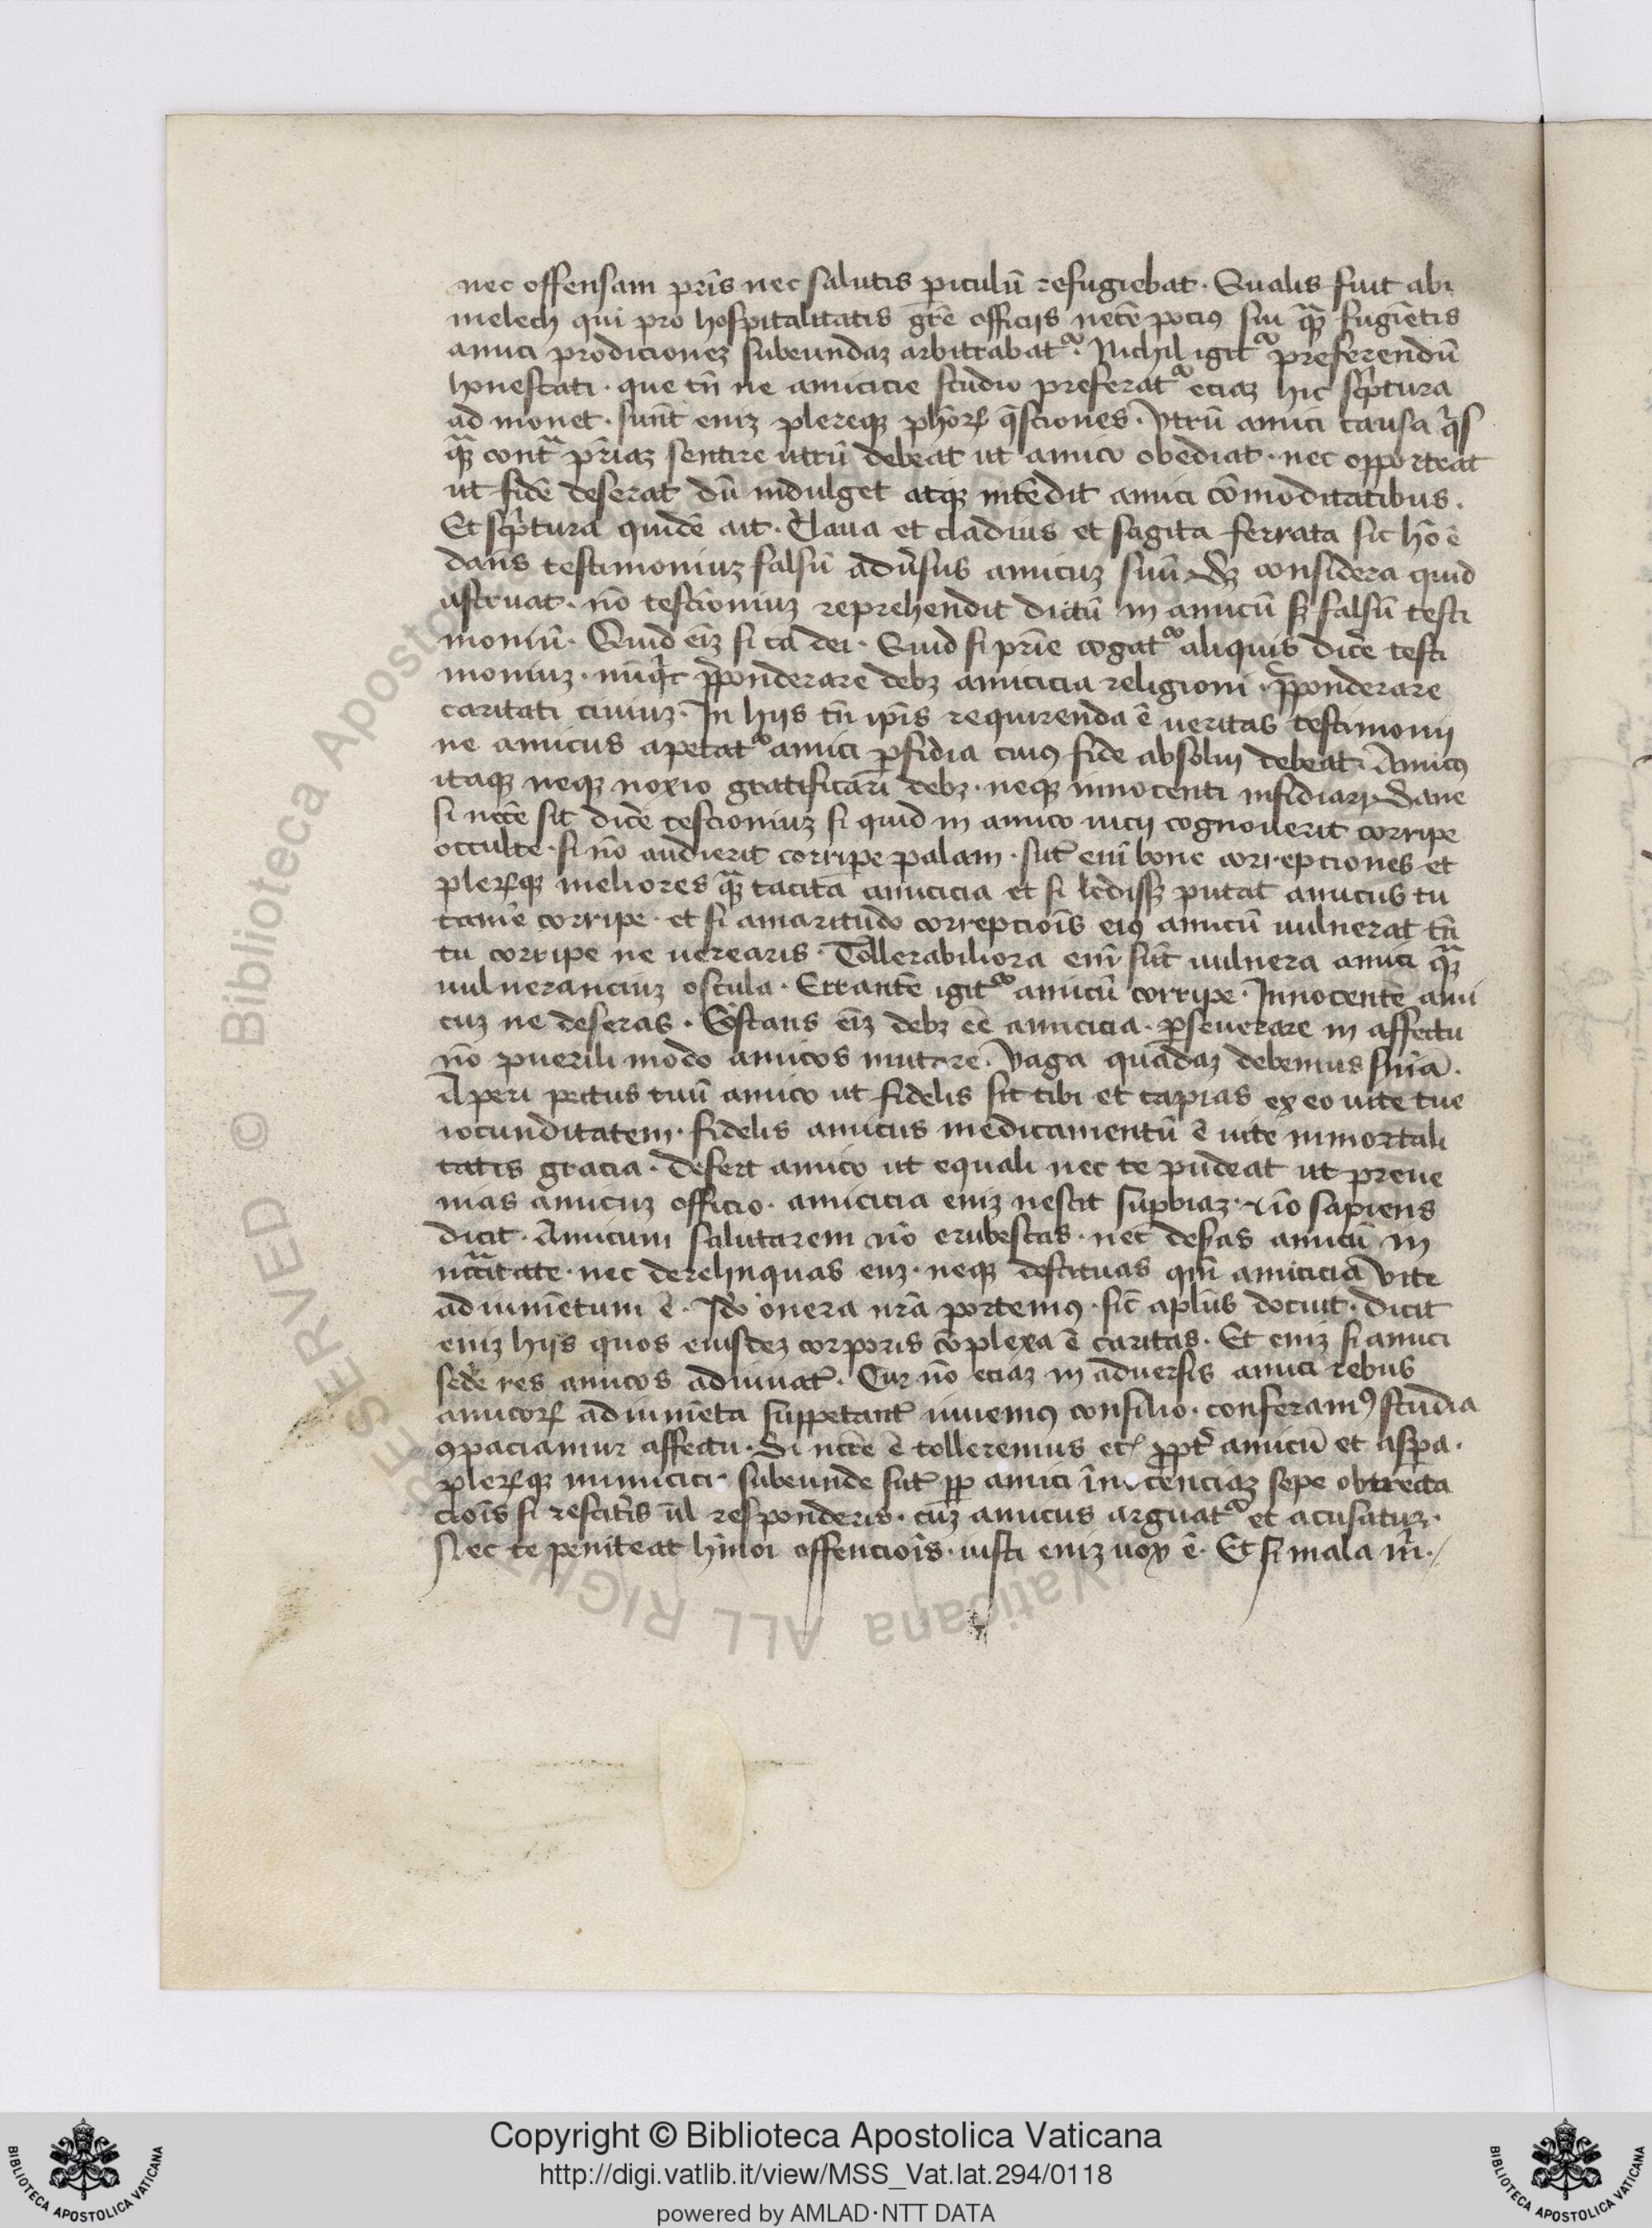 nec offensam pr̄is nec salutis piculū refugiebat · Qualis fuit abi
melech qui pro hospitalitatis gr̄e officijs necē pociꝰ sui qᷓꝫ fugiētis
amici prodicioneꝫ subeundaꝫ arbitrabatᷣ. Nichil igitᷣ preferendū
honestati · que tn̄ ne amicicie studio preferatᷣ eciaꝫ hic scp̄tura
ad monet · sunt eniꝫ plereqꝫ ph̄orꝝ q̄stiones · Vtrū amici causa q̄s
qᷓꝫ contᷓ pr̄iaꝫ sentire utrū debeat ut amico obediat · nec opporteat
ut fidē deserat dū indulget atqꝫ intēdit amici cōmoditatibus .
Et scp̄tura quidē ait · Claua et cladius et sagita ferrata sic hō ē
dans testimoniuꝫ falsū adūsus amicuꝫ suū Sꝫ considera quid
astruat · nō testioniuꝫ reprehendit dictū in amicū sꝫ falsū testi
moniū · Quid eīꝫ si cā dei · Quid si prīe cogatᷣ aliquis dicē testi
moniuꝫ · nūq̄t p̄ponderare debꝫ amicicia religioni · p̄ponderare
caritati ciuiuꝫ · In hijs tn̄ ip̄is requirenda ē ueritas testimonij
ne amicus apetatᷣ amici ꝑfidia cuiꝰ fide absolui debeat · Amicꝰ
itaqꝫ neqꝫ noxio gratificari debꝫ · neqꝫ innocenti insidiari · Sane
si necē sit dicē testioniuꝫ si quid in amico uicij cognouerit corripe
occulte · si nō audierit corripe palam · sūt enī bone correpciones et
plerꝝqꝫ meliores qᷓꝫ tacita amicicia et si ledissꝫ putat amicus tu
tamē corripe · et si amaritudo correpciōis eiꝰ amicū uulnerat tn̄
tu corripe ne uerearis · Tollerabiliora enī sūt uulnera amici qᷓꝫ
uulneranciuꝫ oscula · Errantē igitᷣ amicū corripe · Innocentē ami
cuꝫ ne deseras · Cōstans eīꝫ debꝫ eē amicicia · ꝑseuerare in affectu
nō puerili modo amicos mutare · Vaga quadaꝫ debemus sn̄ia .
Aperi pectus tuū amico ut fidelis sit tibi et capias ex eo uite tue
iocunditatem · fidelis amicus medicamentū ē uite inmortali
tatis gracia · defert amico ut equali nec te pudeat ut preue
nias amicuꝫ officio · amicicia eniꝫ nescit supbiaꝫ · Iō sapiens
dicit · Amicum salutarem nō erubescas · nec desas amicū in
nc̄citate · nec derelinquas euꝫ · neqꝫ destituas qm̄ amiciciā vite
adiumētum ē · Ido onera nr̄a portemꝰ · sic apl̄us docuit · dicit
eniꝫ hijs quos eiusdeꝫ corporis cōplexa ē caritas · Et eniꝫ si amici
secde res amicos adiuuat · Cur nō eciaꝫ in aduersis amici rebus
amicorꝝ adiumēta suppetant iuuemꝰ consilio · conferamꝰ studia
ꝯpaciamur affectu · Si necē ē tolleremus etc̄ ꝓpt̄ amicū et aspa .
plerꝝqꝫ inimicici · subeunde sūt ꝓp amici īnocenciaꝫ sepe obtrecta
ciōis si resciteris ūl responderis · cuꝫ amicus arguatᷣ et acusatur ·
Nec te peniteat h̄moi offenciōis · iusti eniꝫ uox ē · Et si mala m̄ ·
Copyright © Biblioteca Apostolica Vaticana
http://digi.vatlib.it/view/MSS_Vat.lat.294/0118
powered by AMLAD·NTT DATA
BIBLIOTECA APOSTOLICA VATICANA
BIBLIOTECA APOSTOLICA VATICANA